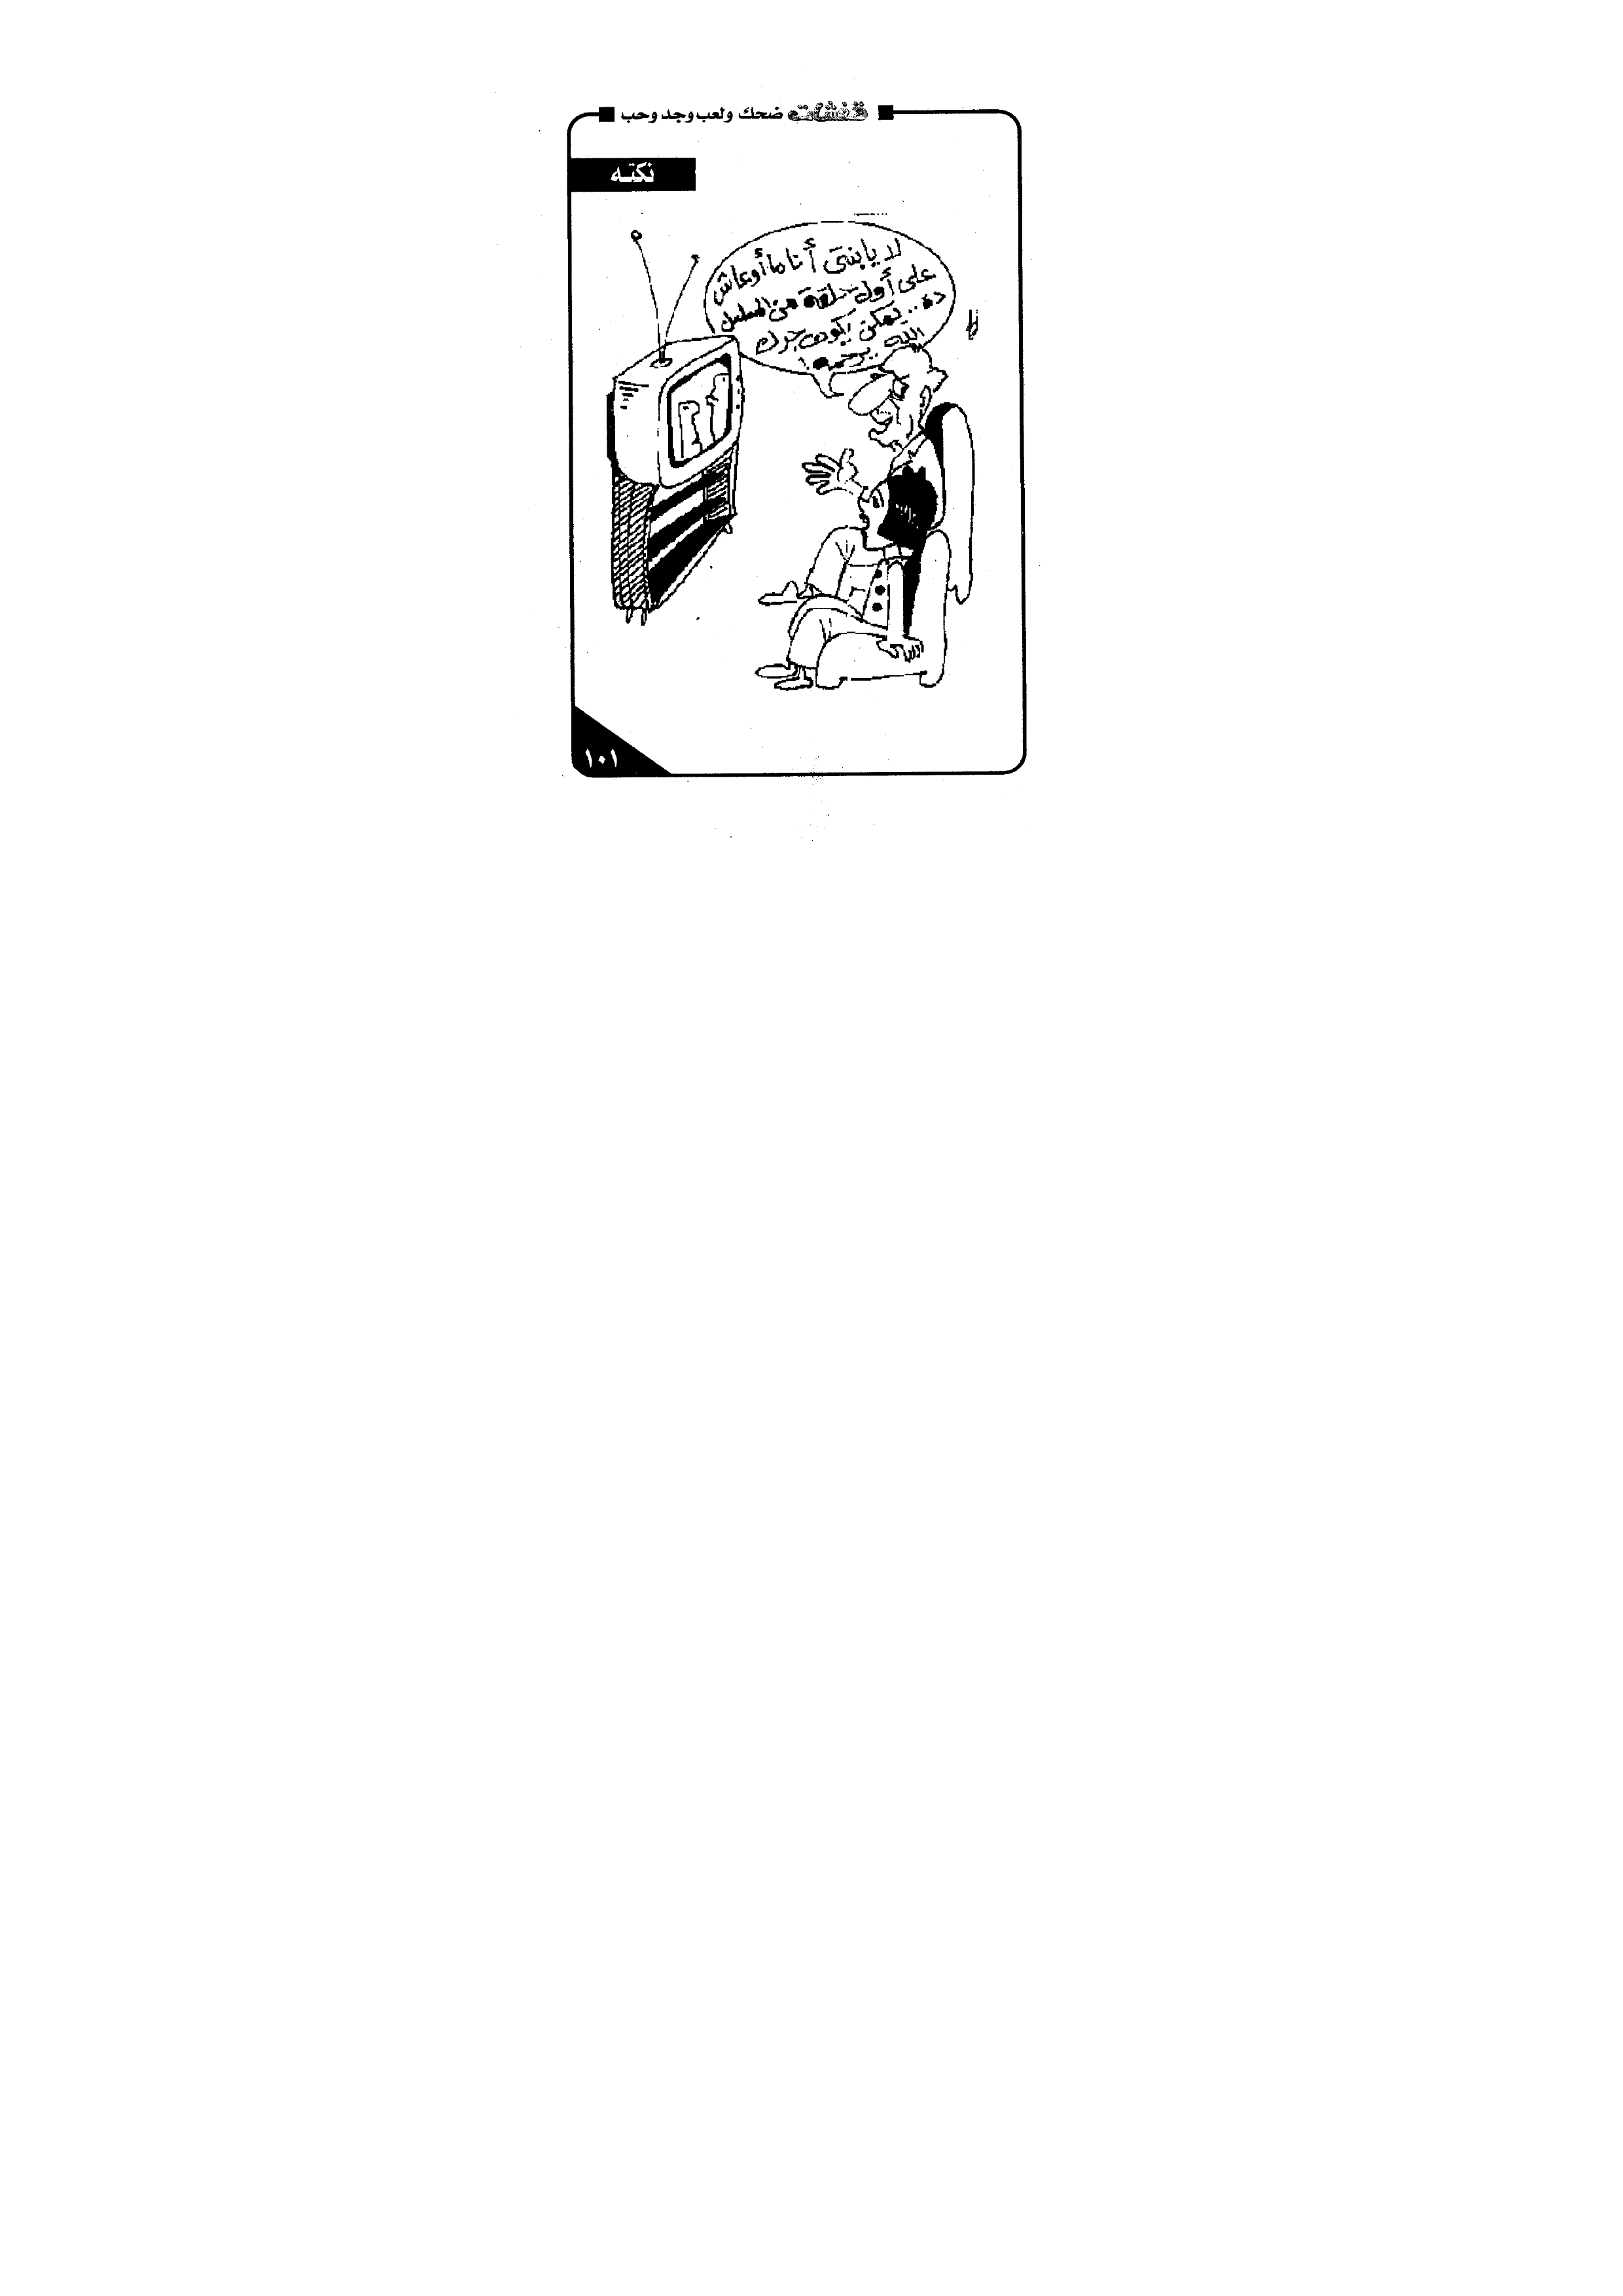 قفشات ضحك ولعب وجد وحب
نكته
لا يا بنتى أنا ما أوعاش
على أول حلقة من المسلسل
ده .. يمكن يكون جدك
الله يرحمه!
١٠١